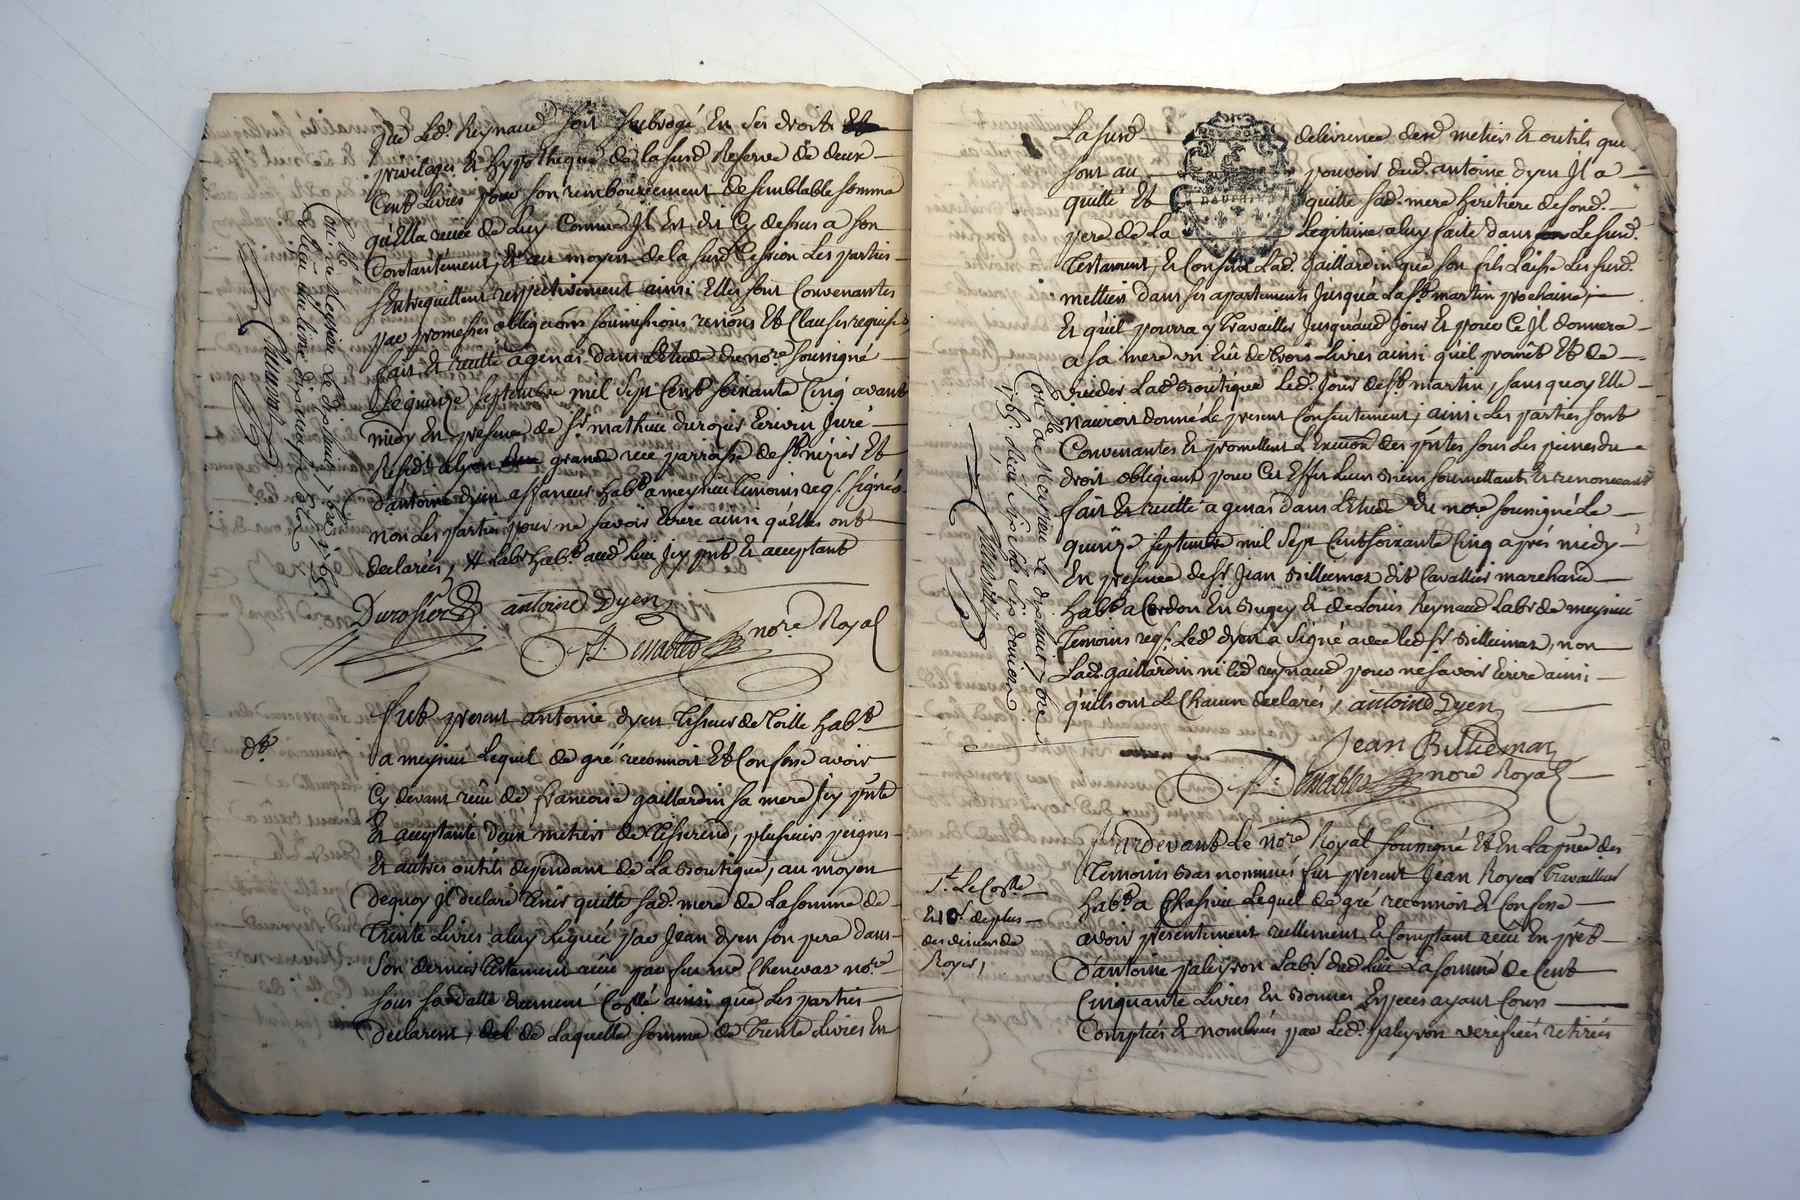 que led. Reynaud soit subrogé En ses droits Et
privileges & hypotheque de la susd. Reserve de deux
Cent Livres pour son remboursement de semblable somme
qu'Ella recue de Luy Comme Jl Est dit Cy dessus a son
Contantement, Et au moyen de la susd. Cession Les parties
S'entrequittent respectivement ainsi Elles sont Convenantes
par promesses obligaons soumissions renons Et Clauses requises
fait Et recitté a genas dans L'Etude du nore. soussigné
Le quinze septembre mil Sept Cent soixante Cinq avant
midy En presence de Sr. mathieu durosier Ecrivin Juré
Residt. a Lyon grande rue parroisse de St. nizier Et
d'antoine dyen affaneur habt. a meysieu temoins req. signés
non Les parties pour ne savoir Ecrire ainsi qu'Elles ont
declarées, Labr. habt. aud. Lieu Jcy pnt. Et acceptant
Durosier antoine Dyen
nore. Royal
Con.lé a Meyzieu Le dix huit 7bre 1765.
dt.
fut present antoine dyen Tisseur de Toille habt.
a meysieu Lequel de gré reconnoit Et Confesse avoir
Cy devant recu de francoise gaillardin sa mere Jcy pnte
Et acceptante deux metiers de tisserend, plusieurs peignes
Et autres outils dependant de La Boutique, au moyen
de quoy Jl declare tenir quitte sad. mere de La somme de
Trente Livres a luy Leguée par Jean dyen son pere dans
Son dernier testament recu par feu me. Chenevas nore.
sous sa datte duement Collé ainsi que Les parties
declarent, de laquelle somme de Trente Livres En
La susd. delivrance desd. metiers Et outils qui
sont au pouvoir dud. antoine dyen Jl a
quitté Et quitte sad. mere heritiere de sond.
pere de La Legitime a luy faite dans Le susd.
Testament, Et Consent Lad. gaillardin que son fils Laisse Les susd.
mettiers dans ses apartements Jusqu'a La St. martin prochaine,
Et qu'il pourra y travailler Jusqu'aud. Jour Et pour Ce Jl donnera
a sa mere un Ecû de trois Livres ainsi qu'il promêt Et de
vuider Lad. Boutique Led. Jour de St. martin, sans quoy Elle
n'auroit donné Le present Consentement, ainsi Les parties sont
Convenantes Et promettent L'Execuon des pntes sous Les peines du
droit obligeant pour Cet Effet Leurs Biens soumettants Et renonceants
fait Et recitté a genas dans L'Etude du nore soussigné Le
quinze septembre mil Sept Cent soixante Cinq après midy
En presence de Sr. Jean Billiemaz dit Cavallier marchand
habt. a Cordon En Bugey Et de Louis Reynaud Labr. de meysieu
Temoins req. Led. dyen a signé avec led. Sr. Billiemaz, non
Lad. gaillardin ni Led. reynaud pour ne savoir Ecrire ainsi
qu'ils ont de Chacun declarés, antoine Dyen
Jean Billiemaz
nore Royal
Con.lé a Meyzieu Le dix huit 7bre
1765. Recu six sols six deniers
Pardevant Le nore Royal soussigné Et En La pnce des
Temoins Bas nommés fut present Jean Royer travailleur
habt. a Chassieu Lequel de gré reconnoit Et Confesse
avoir presentement reellement Et Comptant recu En prêt
d'antoine paleyson Labr. dud. Lieu La somme de Cent
Cinquante Livres En Bonnes Especes ayant Cours
Comptées Et nombrées par Led. paleyson verifiées retirées